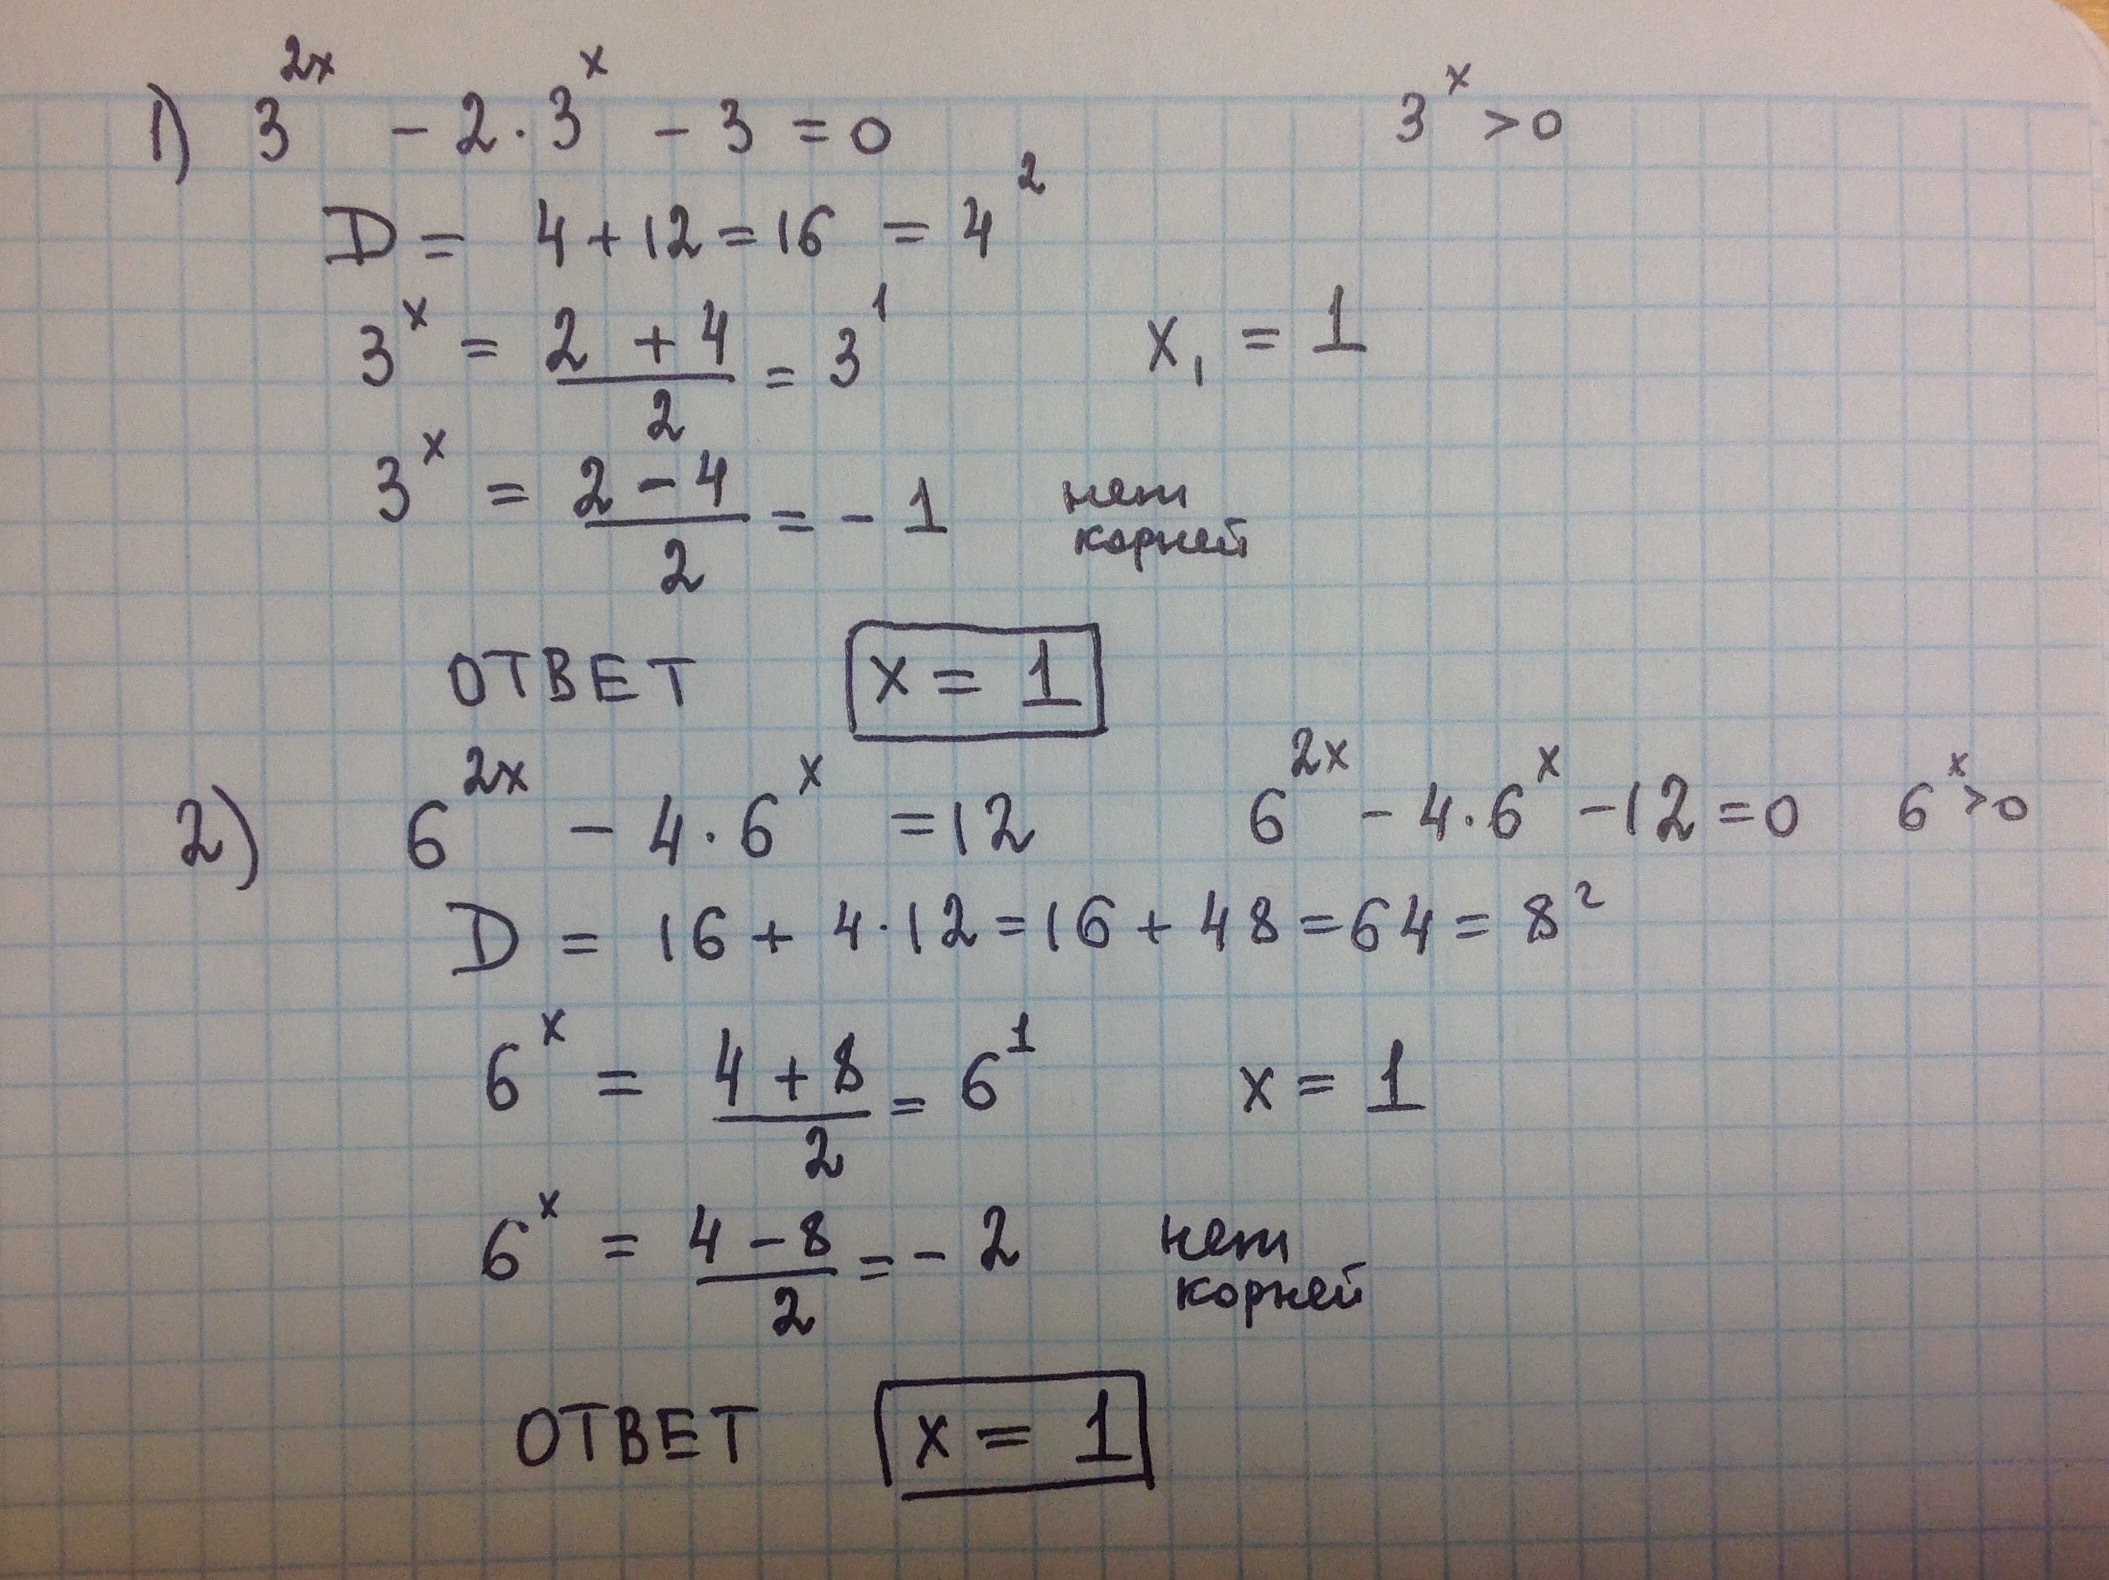 1) 3^{2x} - 2·3^x - 3 = 0     3^x > 0
D = 4 + 12 = 16 = 4^2
3^x = \frac{2 + 4}{2} = 3^1     x_1 = 1
3^x = \frac{2 - 4}{2} = - 1     нет корней
ОТВЕТ     x = 1
2) 6^{2x} - 4·6^x = 12     6^{2x} - 4·6^x - 12 = 0     6^x > 0
D = 16 + 4·12 = 16 + 48 = 64 = 8^2
6^x = \frac{4 + 8}{2} = 6^1     x = 1
6^x = \frac{4 - 8}{2} = - 2     нет корней
ОТВЕТ     x = 1